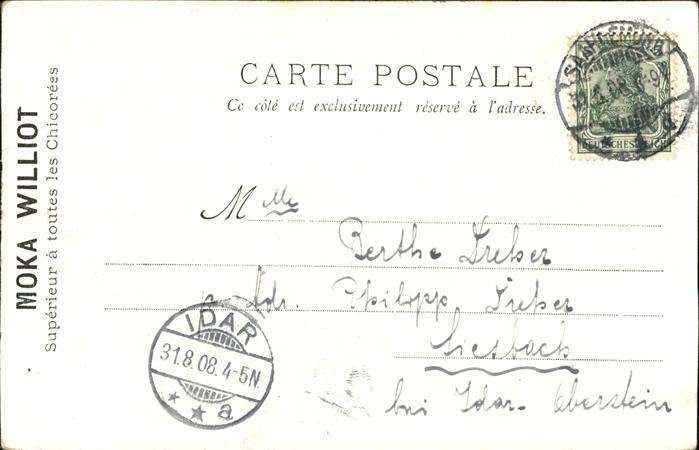 MOKA WILLIOT
Supérieur à toutes les Chicorées
CARTE POSTALE
Ce côté est exclusivement réservé à l'adresse.
DEUTSCHES REICH
Mlle
Berthe Treher
Adr. Philipp Treher
Siesbach
bei Idar-Oberstein
IDAR
31.8.08.4-5N.
* * a